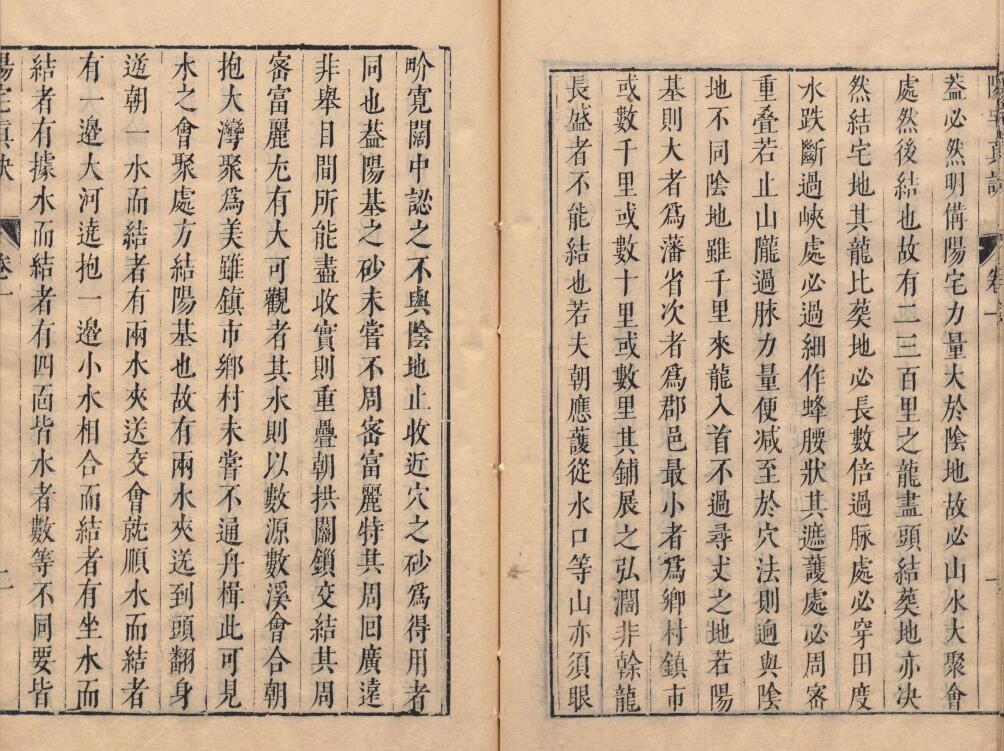 陽宅眞訣 卷一
葢必然明備陽宅力量大於陰地故必山水大聚會
處然後結也故有二三百里之龍盡頭結葬地亦决
然結宅地其龍比葬地必長數倍過脉處必穿田度
水跌斷過峽處必過細作蜂腰狀其遮護處必周宻
重疊若止山隴過脉力量便减至於穴法則逈與陰
地不同陰地雖千里來龍入首不過尋丈之地若陽
基則大者爲藩省次者爲郡邑最小者爲鄉村鎮市
或數千里或數十里或數里其鋪展之弘濶非榦龍
長盛者不能結也若夫朝應護從水口等山亦須眼
畍寛闊中認之不與陰地止收近穴之砂爲得用者
同也葢陽基之砂未嘗不周宻富麗特其周回廣遠
非舉目間所能盡收實則重疊朝拱關鎖交結其周
宻富麗尤有大可觀者其水則以數源數溪會合朝
抱大灣聚爲美雖鎮市鄉村未嘗不通舟楫此可見
水之會聚處方結陽基也故有兩水夾送到頭翻身
逆朝一水而結者有兩水夾送交會就順水而結者
有一邊大河遶抱一邊小水相合而結者有坐水而
結者有據水而結者有四面皆水者數等不同要皆
陽宅眞訣 卷一